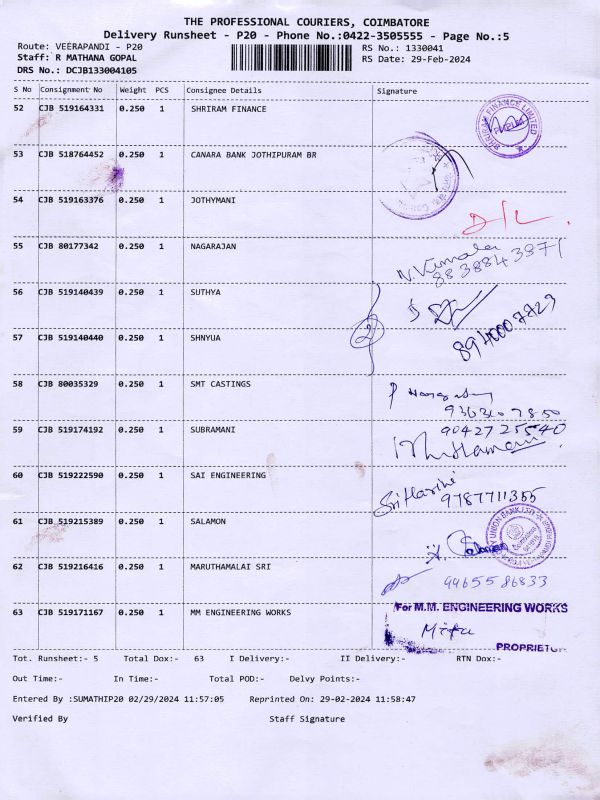 THE PROFESSIONAL COURIERS, COIMBATORE
Delivery Runsheet - P20 - Phone No.:0422-3505555 - Page No.:5
Route: VEERAPANDI - P20 RS No.: 1330041
Staff: R MATHANA GOPAL RS Date: 29-Feb-2024
DRS No.: DCJB133004105
S No Consignment No Weight PCS Consignee Details Signature
52 CJB 519164331 0.250 1 SHRIRAM FINANCE
53 CJB 518764452 0.250 1 CANARA BANK JOTHIPURAM BR
54 CJB 519163376 0.250 1 JOTHYMANI
55 CJB 80177342 0.250 1 NAGARAJAN N.Vimala
8838843371
56 CJB 519140439 0.250 1 SUTHYA
57 CJB 519140440 0.250 1 SHNYUA 8940007823
58 CJB 80035329 0.250 1 SMT CASTINGS
59 CJB 519174192 0.250 1 SUBRAMANI 9042725540
60 CJB 519222590 0.250 1 SAI ENGINEERING SriHarini 9787711355
61 CJB 519215389 0.250 1 SALAMON
62 CJB 519216416 0.250 1 MARUTHAMALAI SRI 9965586833
63 CJB 519171167 0.250 1 MM ENGINEERING WORKS For M.M. ENGINEERING WORKS
PROPRIETOR
Tot. Runsheet:- 5 Total Dox:- 63 I Delivery:- II Delivery:- RTN Dox:-
Out Time:- In Time:- Total POD:- Delvy Points:-
Entered By :SUMATHIP20 02/29/2024 11:57:05 Reprinted On: 29-02-2024 11:58:47
Verified By Staff Signature